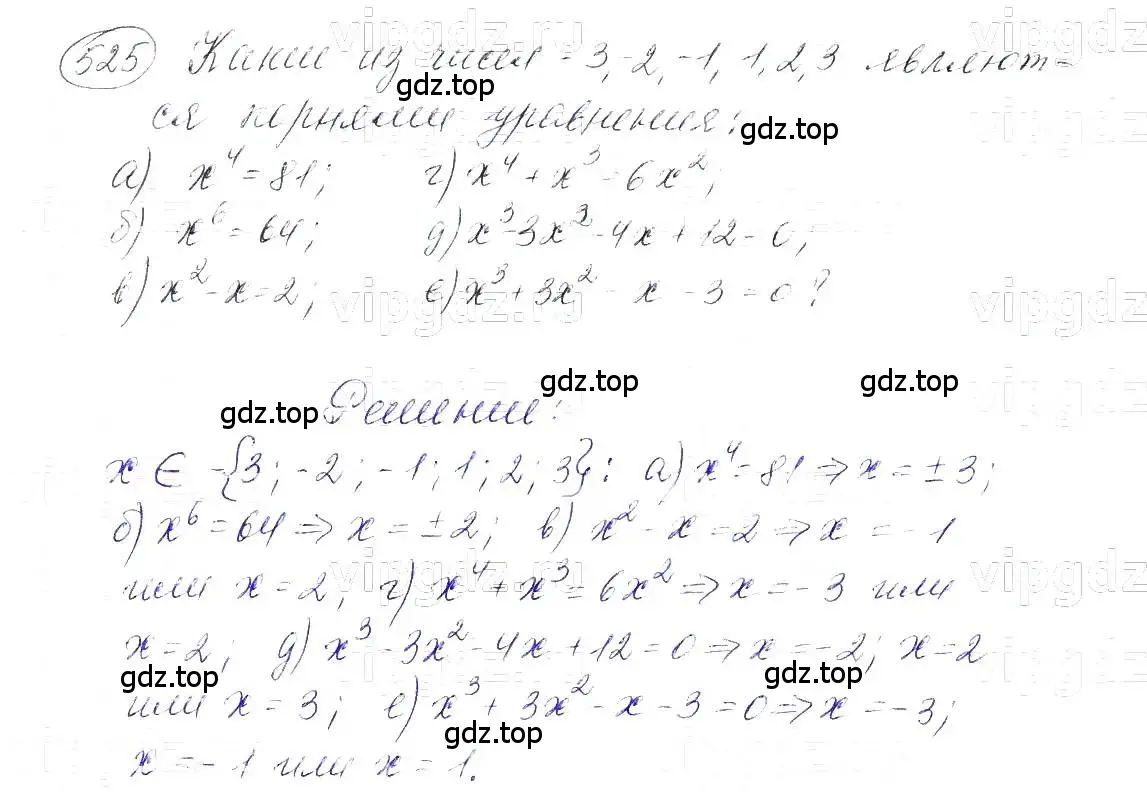 525 Какие из чисел -3, -2, -1, 1, 2, 3 являют-
ся корнями уравнения:
а) x⁴ = 81; г) x⁴ + x³ = 6x²;
б) x⁶ = 64; д) x³ - 3x² - 4x + 12 = 0;
в) x² - x = 2; е) x³ + 3x² - x - 3 = 0?
Решение:
x ∈ -{3; -2; -1; 1; 2; 3}: а) x⁴ = 81 ⇒ x = ±3;
б) x⁶ = 64 ⇒ x = ±2; в) x² - x = 2 ⇒ x = -1
или x = 2; г) x⁴ + x³ = 6x² ⇒ x = -3 или
x = 2; д) x³ - 3x² - 4x + 12 = 0 ⇒ x = -2; x = 2
или x = 3; е) x³ + 3x² - x - 3 = 0 ⇒ x = -3;
x = -1 или x = 1.
gdz.top
gdz.top
gdz.top
gdz.top
gdz.top
gdz.top
gdz.top
gdz.top
vipgdz.ru
vipgdz
vipgdz.ru
vipgdz
vipgdz.ru
vipgdz